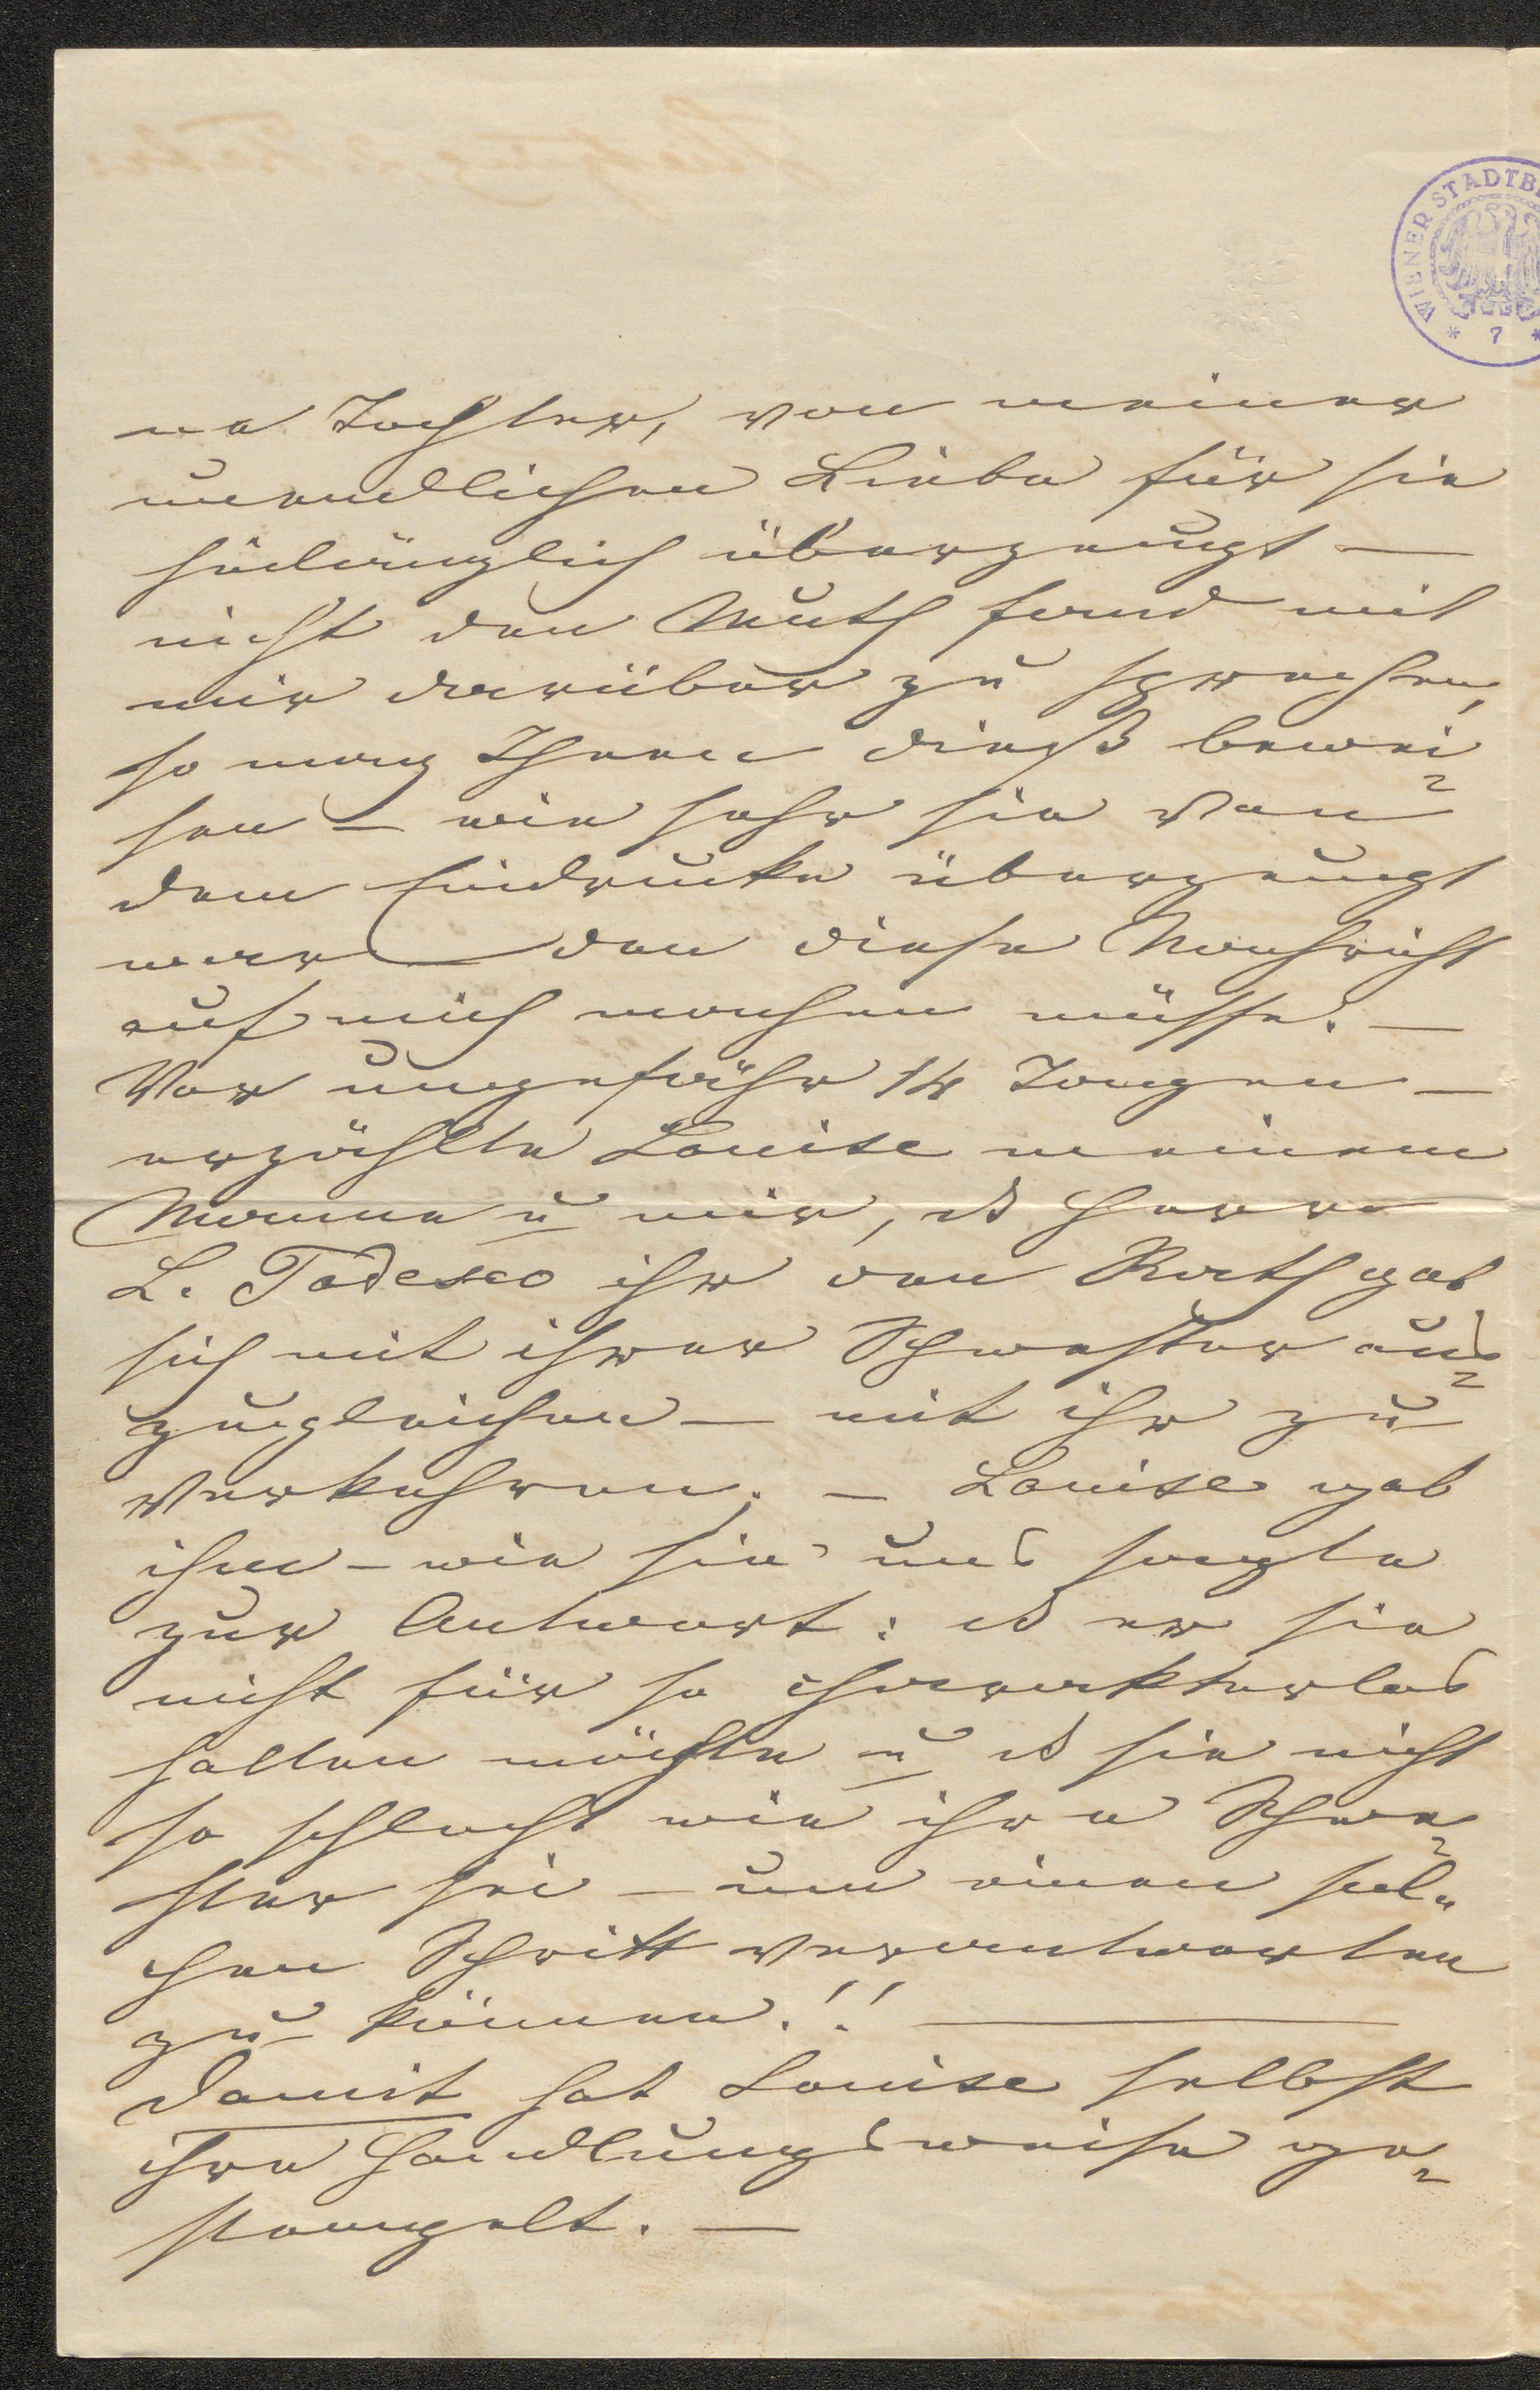 WIENER STADTB
* 7 *
ne Tochter, von meiner
unendlichen Liebe für sie
hinlänglich überzeugt —
nicht den Muth fand mit
mir darüber zu sprechen,
so mag Ihnen dieß bewei-
sen – wie sehr sie von
dem Eindrucke überzeugt
war den diese Nachricht
auf mich machen müsse. —
Vor ungefähr 14 Tagen —
erzählte Louise meinem
Manne u mir, daß Herr
L. Todesco ihr den Rath gab
sich mit ihrer Schwester aus-
zugleichen — mit ihr zu
verkehren. — Louise gab
ihm – wie sie uns sagte
zur Antwort: daß er sie
nicht für so charakterlos
halten möchte u daß sie nicht
so schlecht wie ihre Schwe-
ster sei – um einen sol-
chen Schritt verantworten
zu können.!! —
Damit hat Louise selbst
ihre Handlungsweise ge-
stempelt. —